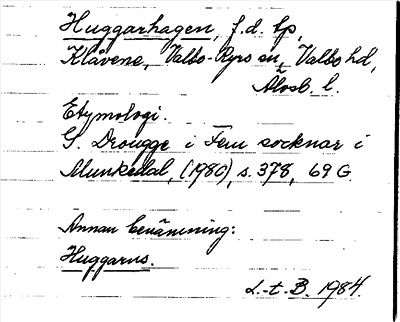 Huggarhagen, f.d. tp,
Klåvene, Valbo-Ryrs sn, Valbo hd,
Älvsb. l.
Etymologi.
G. Drougge i Fem socknar i
Munkedal, (1980), s. 378, 69 G
Annan benämning:
Huggarns.
L.-t. B. 1984.